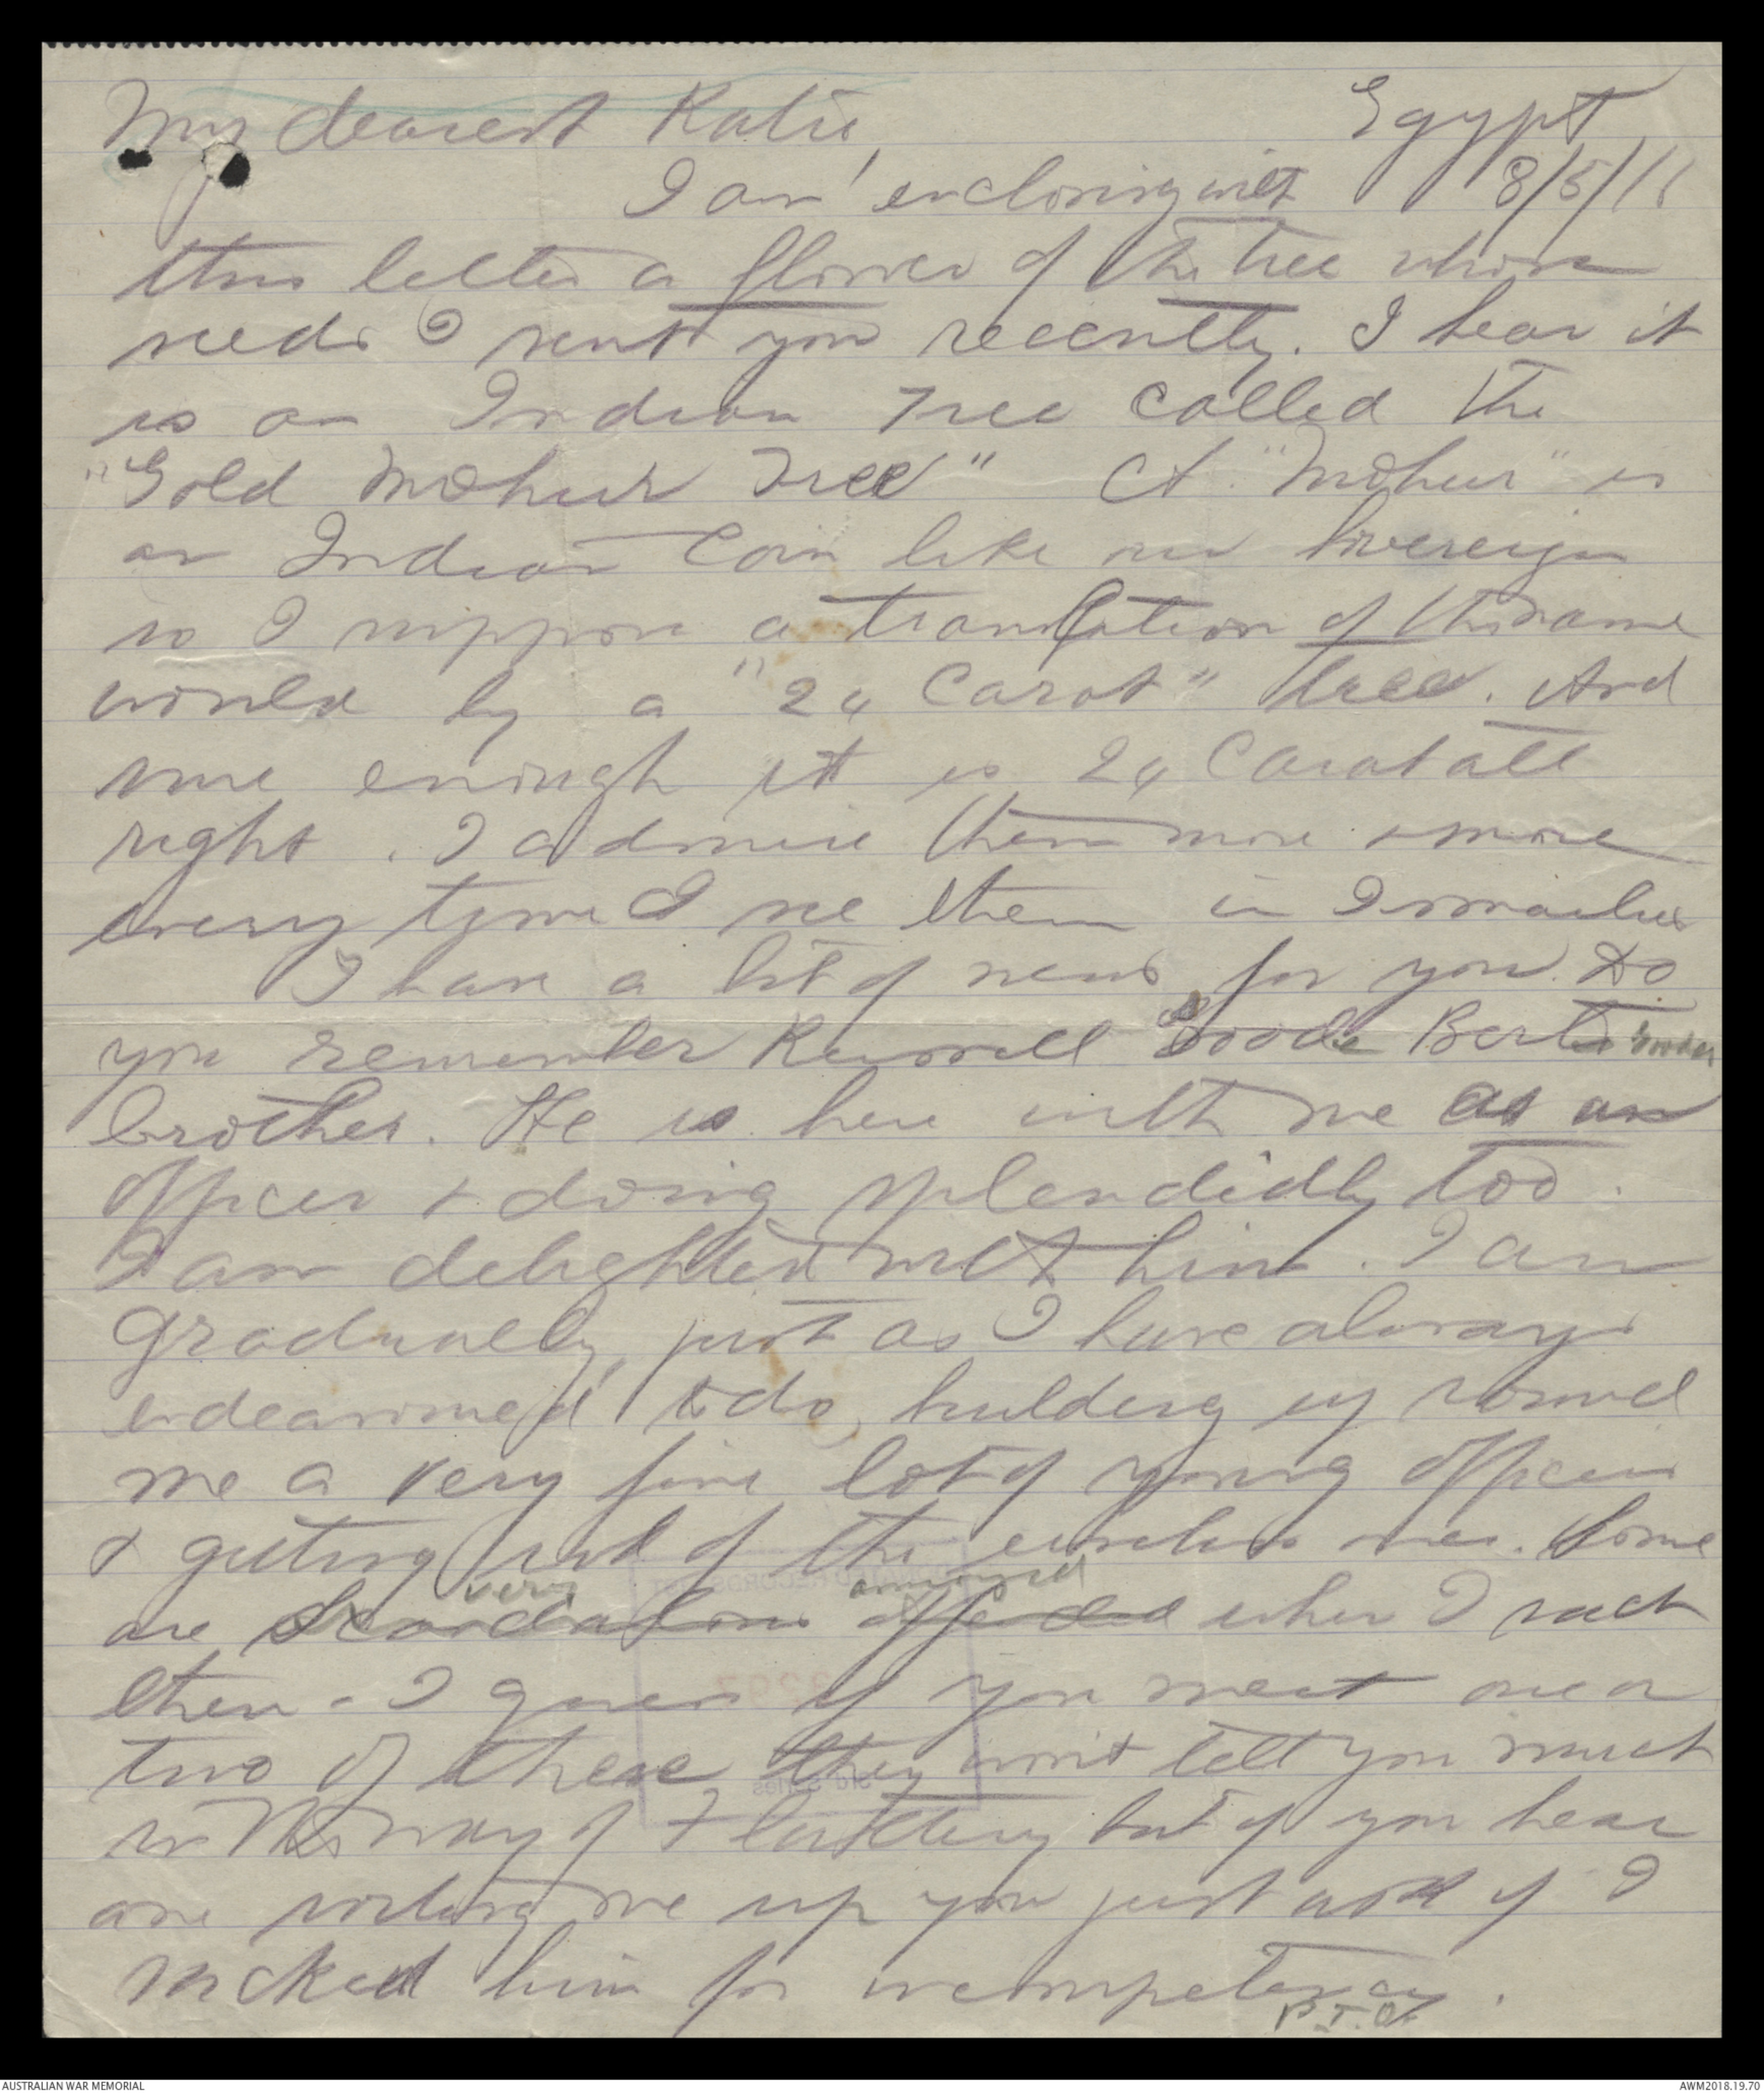 My dearest Katie,
Egypt
8/5/16
I am enclosing with
this letter a flower of the tree whose
seeds I sent you recently. I hear it
is an Indian Tree called the
"Gold Mohur Tree" A "Mohur" is
an Indian Coin like our Sovereign
so I suppose a translation of the name
would by a "24 Carat" tree. And
sure enough it is 24 Carat all
right. I admire them more & more
every time I see them in Ismailia
I have a bit of news for you. Do
you remember Russell Goode Bert Goodes
brother. He is here with me as an
officer & doing splendidly too.
I am delighted with him. I am
gradually, just as I have always
endeavoured to do, building up round
me a very fine lot of young officers
& getting rid of the useless ones. Some
very annoyed
are scandalous offended when I sack
them - I guess if you meet one or
two of these they won't tell you much
in the way of Flattery but if you hear
one me up you just ask if I
sacked him for incompetency.
P.T.O.
AUSTRALIAN WAR MEMORIAL
AWM2018.19.70